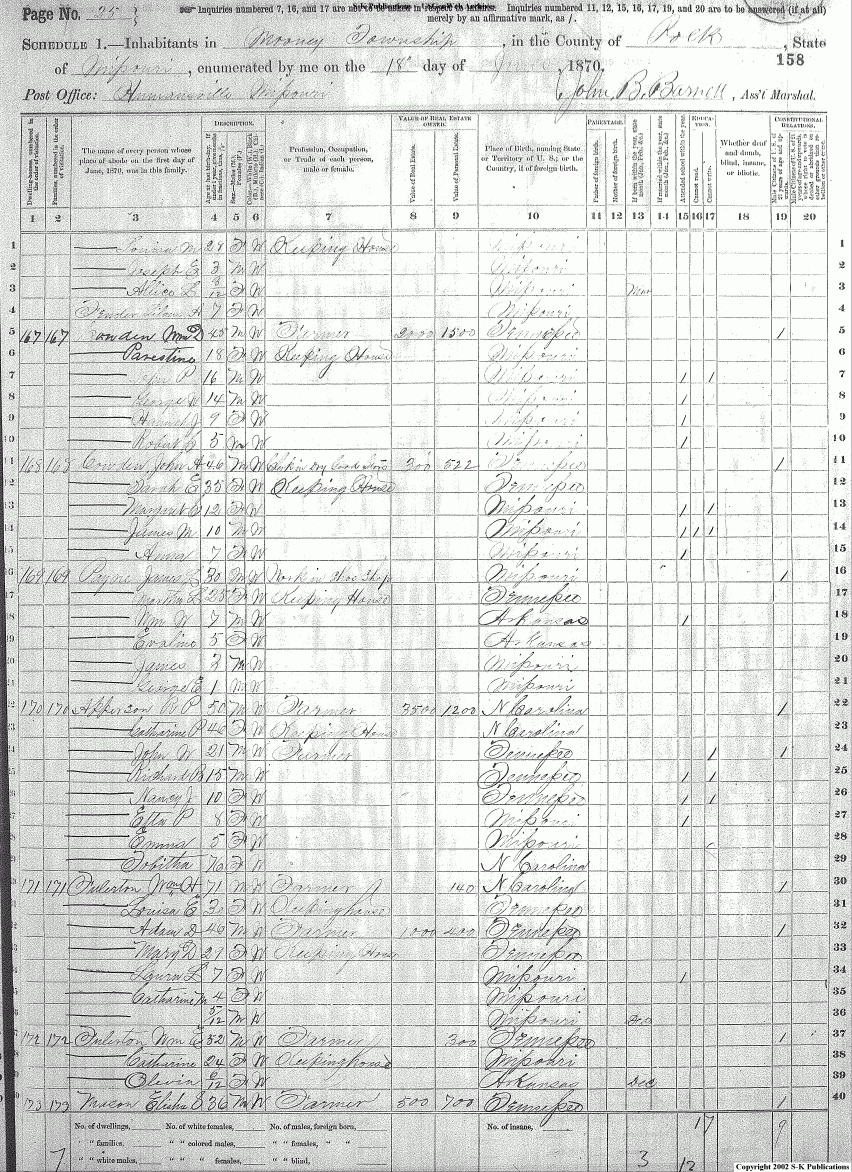 Page No. 25
Inquiries numbered 7, 16, and 17 are not to be asked in respect to infants. Inquiries numbered 11, 12, 15, 16, 17, 19, and 20 are to be answered (if at all)
merely by an affirmative mark, as /.
SCHEDULE 1.—Inhabitants in Mooney Township, in the County of Polk, State
of Missouri, enumerated by me on the 18 day of June, 1870.
158
Post Office: Humansville Missouri John B. Burnell, Ass't Marshal.
Dwelling-houses, numbered in the order of visitation.
Families, numbered in the order of visitation.
The name of every person whose place of abode on the first day of June, 1870, was in this family.
DESCRIPTION.
Profession, Occupation, or Trade of each person, male or female.
VALUE OF REAL ESTATE OWNED.
Value of Real Estate.
Value of Personal Estate.
Place of Birth, naming State or Territory of U. S.; or the Country, if of foreign birth.
PARENTAGE.
Father of foreign birth.
Mother of foreign birth.
Attended school within the year.
EDUCATION.
Cannot read.
Cannot write.
Whether deaf and dumb, blind, insane, or idiotic.
CONSTITUTIONAL RELATIONS.
1 2 3 4 5 6 7 8 9 10 11 12 13 14 15 16 17 18 19 20
1 Louisa M 28 F W Keeping House Missouri 1
2 Joseph E 3 M W Missouri 2
3 Allice L /12 F W Missouri Mar 3
4 7 F W Missouri 4
5 167 167 Cowden Wm D 45 M W Farmer 2000 1500 Tennessee / 5
6 Parestine 18 F W Keeping House Missouri 6
7 P 16 M W Missouri / / 7
8 George W 14 M W Missouri 8
9 Hannah J 9 F W Missouri / 9
10 Robert 5 M W Missouri / 10
11 168 168 Cowden John A 46 M W Clerk in Dry Good Store 300 522 Tennessee / 11
12 Sarah E 35 F W Keeping House Tennessee 12
13 Margaret E 12 F W Missouri / / 13
14 James M 10 M W Missouri / / / 14
15 Anna 7 F W Missouri / 15
16 169 169 Payne James 30 M W Work in Shoe Shop Missouri / 16
17 Martha L 25 F W Keeping House Tennessee 17
18 Wm W 7 M W Arkansas / 18
19 Evaline 5 F W Arkansas 19
20 James 3 M W Missouri 20
21 George E 1 M W Missouri 21
22 170 170 Apperson P 50 M W Farmer 3500 1200 N Carolina / 22
23 Catharine P 46 F W Keeping House N Carolina 23
24 John W 21 M W Farmer Tennessee / / 24
25 Richard B 15 M W Tennessee / / 25
26 Nancy J 10 F W Tennessee / / 26
27 Etta P 8 F W Missouri / 27
28 Emma 5 F W Missouri 28
29 Tobitha 76 F W N Carolina 29
30 171 171 Fulerton Wm H 71 M W Farmer 140 N Carolina / 30
31 Louisa E 30 F W Keepinghouse Tennessee 31
32 Adam D 46 M W Farmer 1000 400 Tennessee / 32
33 Mary D 27 F W Keeping House Tennessee 33
34 Laura L 7 F W Missouri / 34
35 Catharine M 4 F W Missouri 35
36 5/12 M W Missouri 36
37 172 172 Fulerton Wm E 52 M W Farmer 300 Tennessee / 37
38 Catharine 24 F W Keepinghouse Missouri 38
39 6/12 F W Arkansas Dec 39
40 173 173 Mason Elisha E 36 M W Farmer 500 700 Tennessee / 40
No. of dwellings, No. of white females, No. of males, foreign born, No. of insane, 17 9
" " families, " " colored males, " " females, " "
7 " " white males, " " " females, " " blind, 3 12
Copyright 2002 S-K Publications